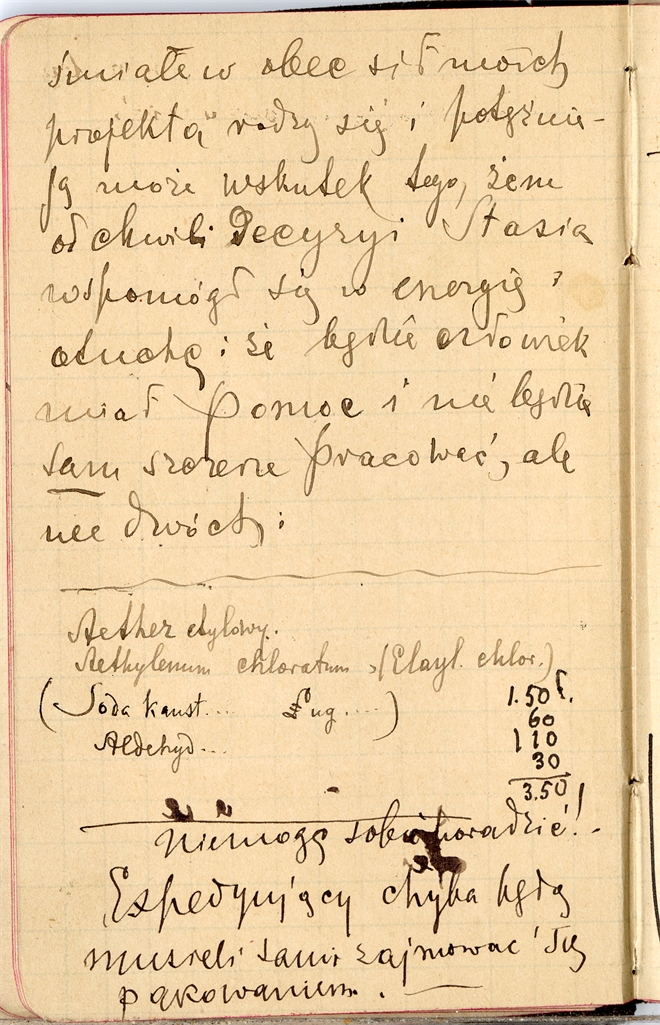 śmiałe w obec sił moich
projekta rodzą się i potężnie-
ją może wskutek tego, żem
od chwili Decyzyi Stasia
wspomógł się w energię i
otuchę i że będzie człowiek
miał pomoc i nie będzie
sam szczerze pracować, ale
we dwóch:
Aether etylowy.
Aethylenum chloratum, (Elayl. chlor.)
(Soda kaust... ug....) 1.50
60
Aldehyd... 110
30
3.50
niemogę sobie poradzić!
Expedyujący chyba będą
musieli sami zajmować się
pakowaniem.